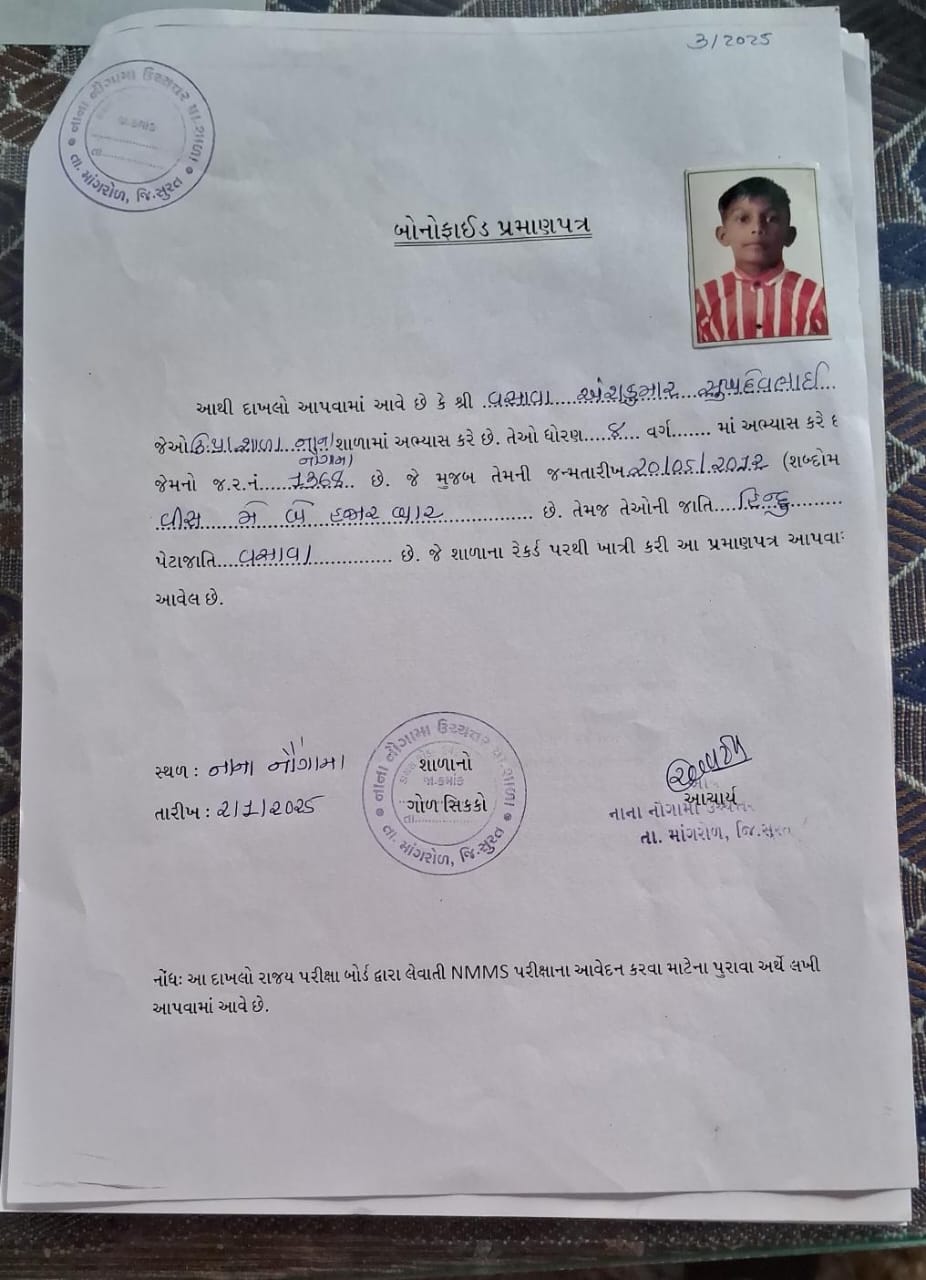 3/2025
નાના નૌગામા ઉચ્ચતર પ્રા.શાળા
જા.ક્રમાંક
તા.
તા. માંગરોળ, જિ.સુરત
બોનોફાઈડ પ્રમાણપત્ર
આથી દાખલો આપવામાં આવે છે કે શ્રી વસાવા અંશકુમાર સુખદેવભાઈ
જેઓ ઉ.પ્રા.શાળા નાના શાળામાં અભ્યાસ કરે છે. તેઓ ધોરણ....૪... વર્ગ....... માં અભ્યાસ કરે
નૌગામા
જેમનો જ.ર.નં......1368.. છે. જે મુજબ તેમની જન્મતારીખ 20/05/2012 (શબ્દોમ
વીસ મે બે હજાર બાર .............. છે. તેમજ તેઓની જાતિ...હિન્દુ........
પેટાજાતિ....વસાવા............ છે. જે શાળાના રેકર્ડ પરથી ખાત્રી કરી આ પ્રમાણપત્ર આપવા
આવેલ છે.
સ્થળ : નાના નૌગામા
તારીખ : 2/1/2025
નાના નૌગામા ઉચ્ચતર પ્રા.શાળા
શાળાનો
જા.ક્રમાંક
ગોળ સિક્કો
તા.
તા. માંગરોળ, જિ.સુરત
આચાર્ય
નાના નૌગામા
તા. માંગરોળ, જિ.સુરત
નોંધઃ આ દાખલો રાજય પરીક્ષા બોર્ડ દ્વારા લેવાતી NMMS પરીક્ષાના આવેદન કરવા માટેના પુરાવા અર્થે લખી
આપવામાં આવે છે.